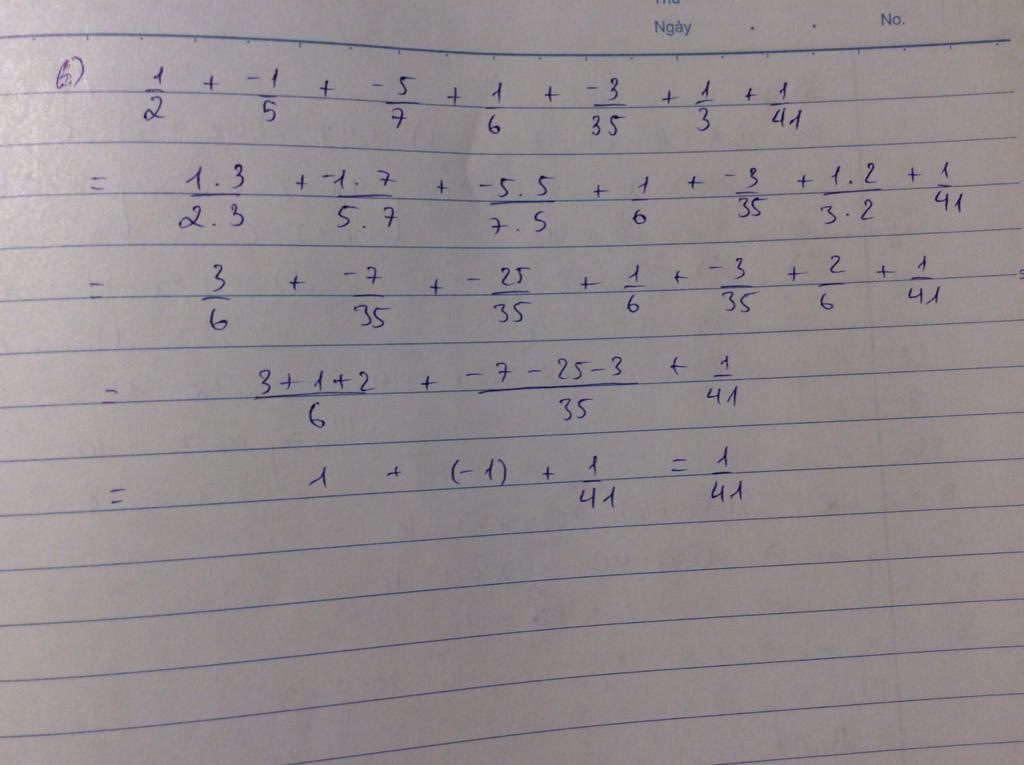 Ngày . . No.
6) 1/2 + -1/5 + -5/7 + 1/6 + -3/35 + 1/3 + 1/41
= 1.3/2.3 + -1.7/5.7 + -5.5/7.5 + 1/6 + -3/35 + 1.2/3.2 + 1/41
= 3/6 + -7/35 + -25/35 + 1/6 + -3/35 + 2/6 + 1/41
= 3+1+2/6 + -7-25-3/35 + 1/41
= 1 + (-1) + 1/41 = 1/41